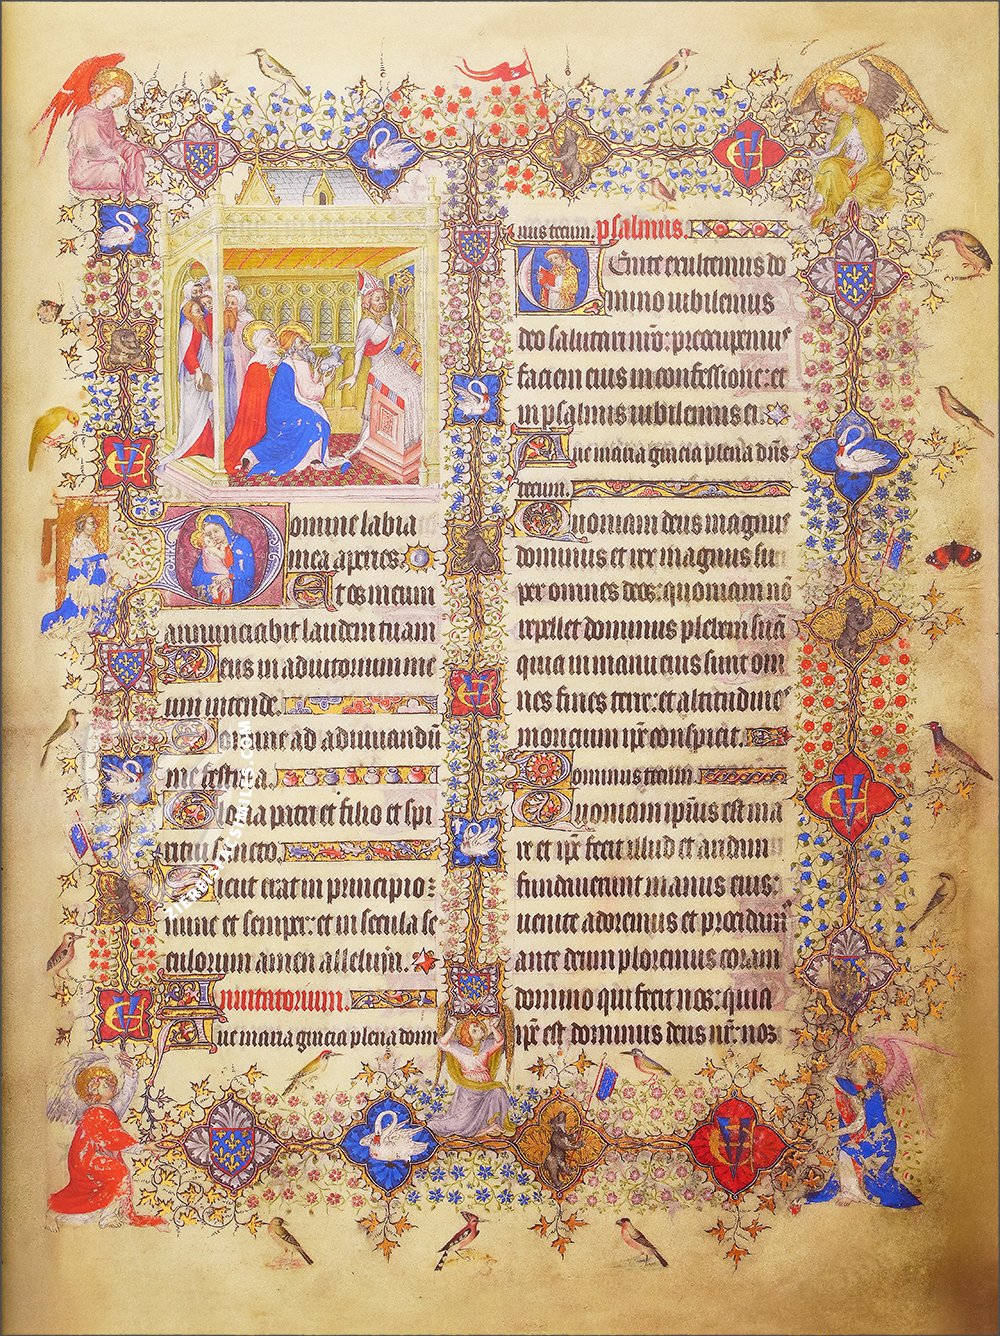 Domine labia
mea aperies.
Et os meum
annunciabit laudem tuam
Deus in adiutorium me
um intende.
Domine ad adiuvandū
me festina.
Gloria patri et filio et spi
ritui sancto.
Sicut erat in principio:
nunc et semper: et in secula se
culorum amen alleluya.
Invitatorium.
Ave maria gracia plena domi
nus tecum. psalmus.
Venite exultemus do
mino iubilemus
deo salutari nrō: preoccupemus
faciem eius in confessione: et
in psalmis iubilemus ei.
Ave maria gracia plena dn̄s
tecum.
Quoniam deus magnus
dominus et rex magnus su
per omnes deos: quoniam nō
repellet dominus plebem suā
quia in manu eius sunt om
nes fines terre: et altitudines
moncium ipē conspicit.
Dominus tecum.
Quoniam ipīus est ma
re et ipē fecit illud et aridam
fundaverunt manus eius:
venite adoremus et procidam
ante deum ploremus coram
domino qui fecit nos: quia
ipē est dominus deus nr̄: nos
ZIEREIS FACSIMILES.COM